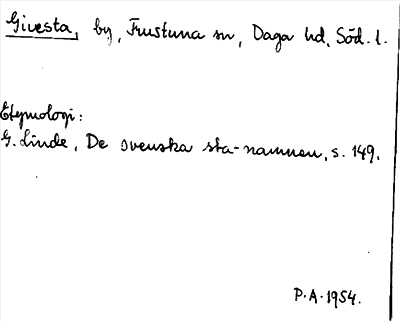 Givesta, by, Frustuna sn, Daga hd, Söd. l.
Etymologi:
G. Linde, De svenska sta-namnen, s. 149.
P. A. 1954.